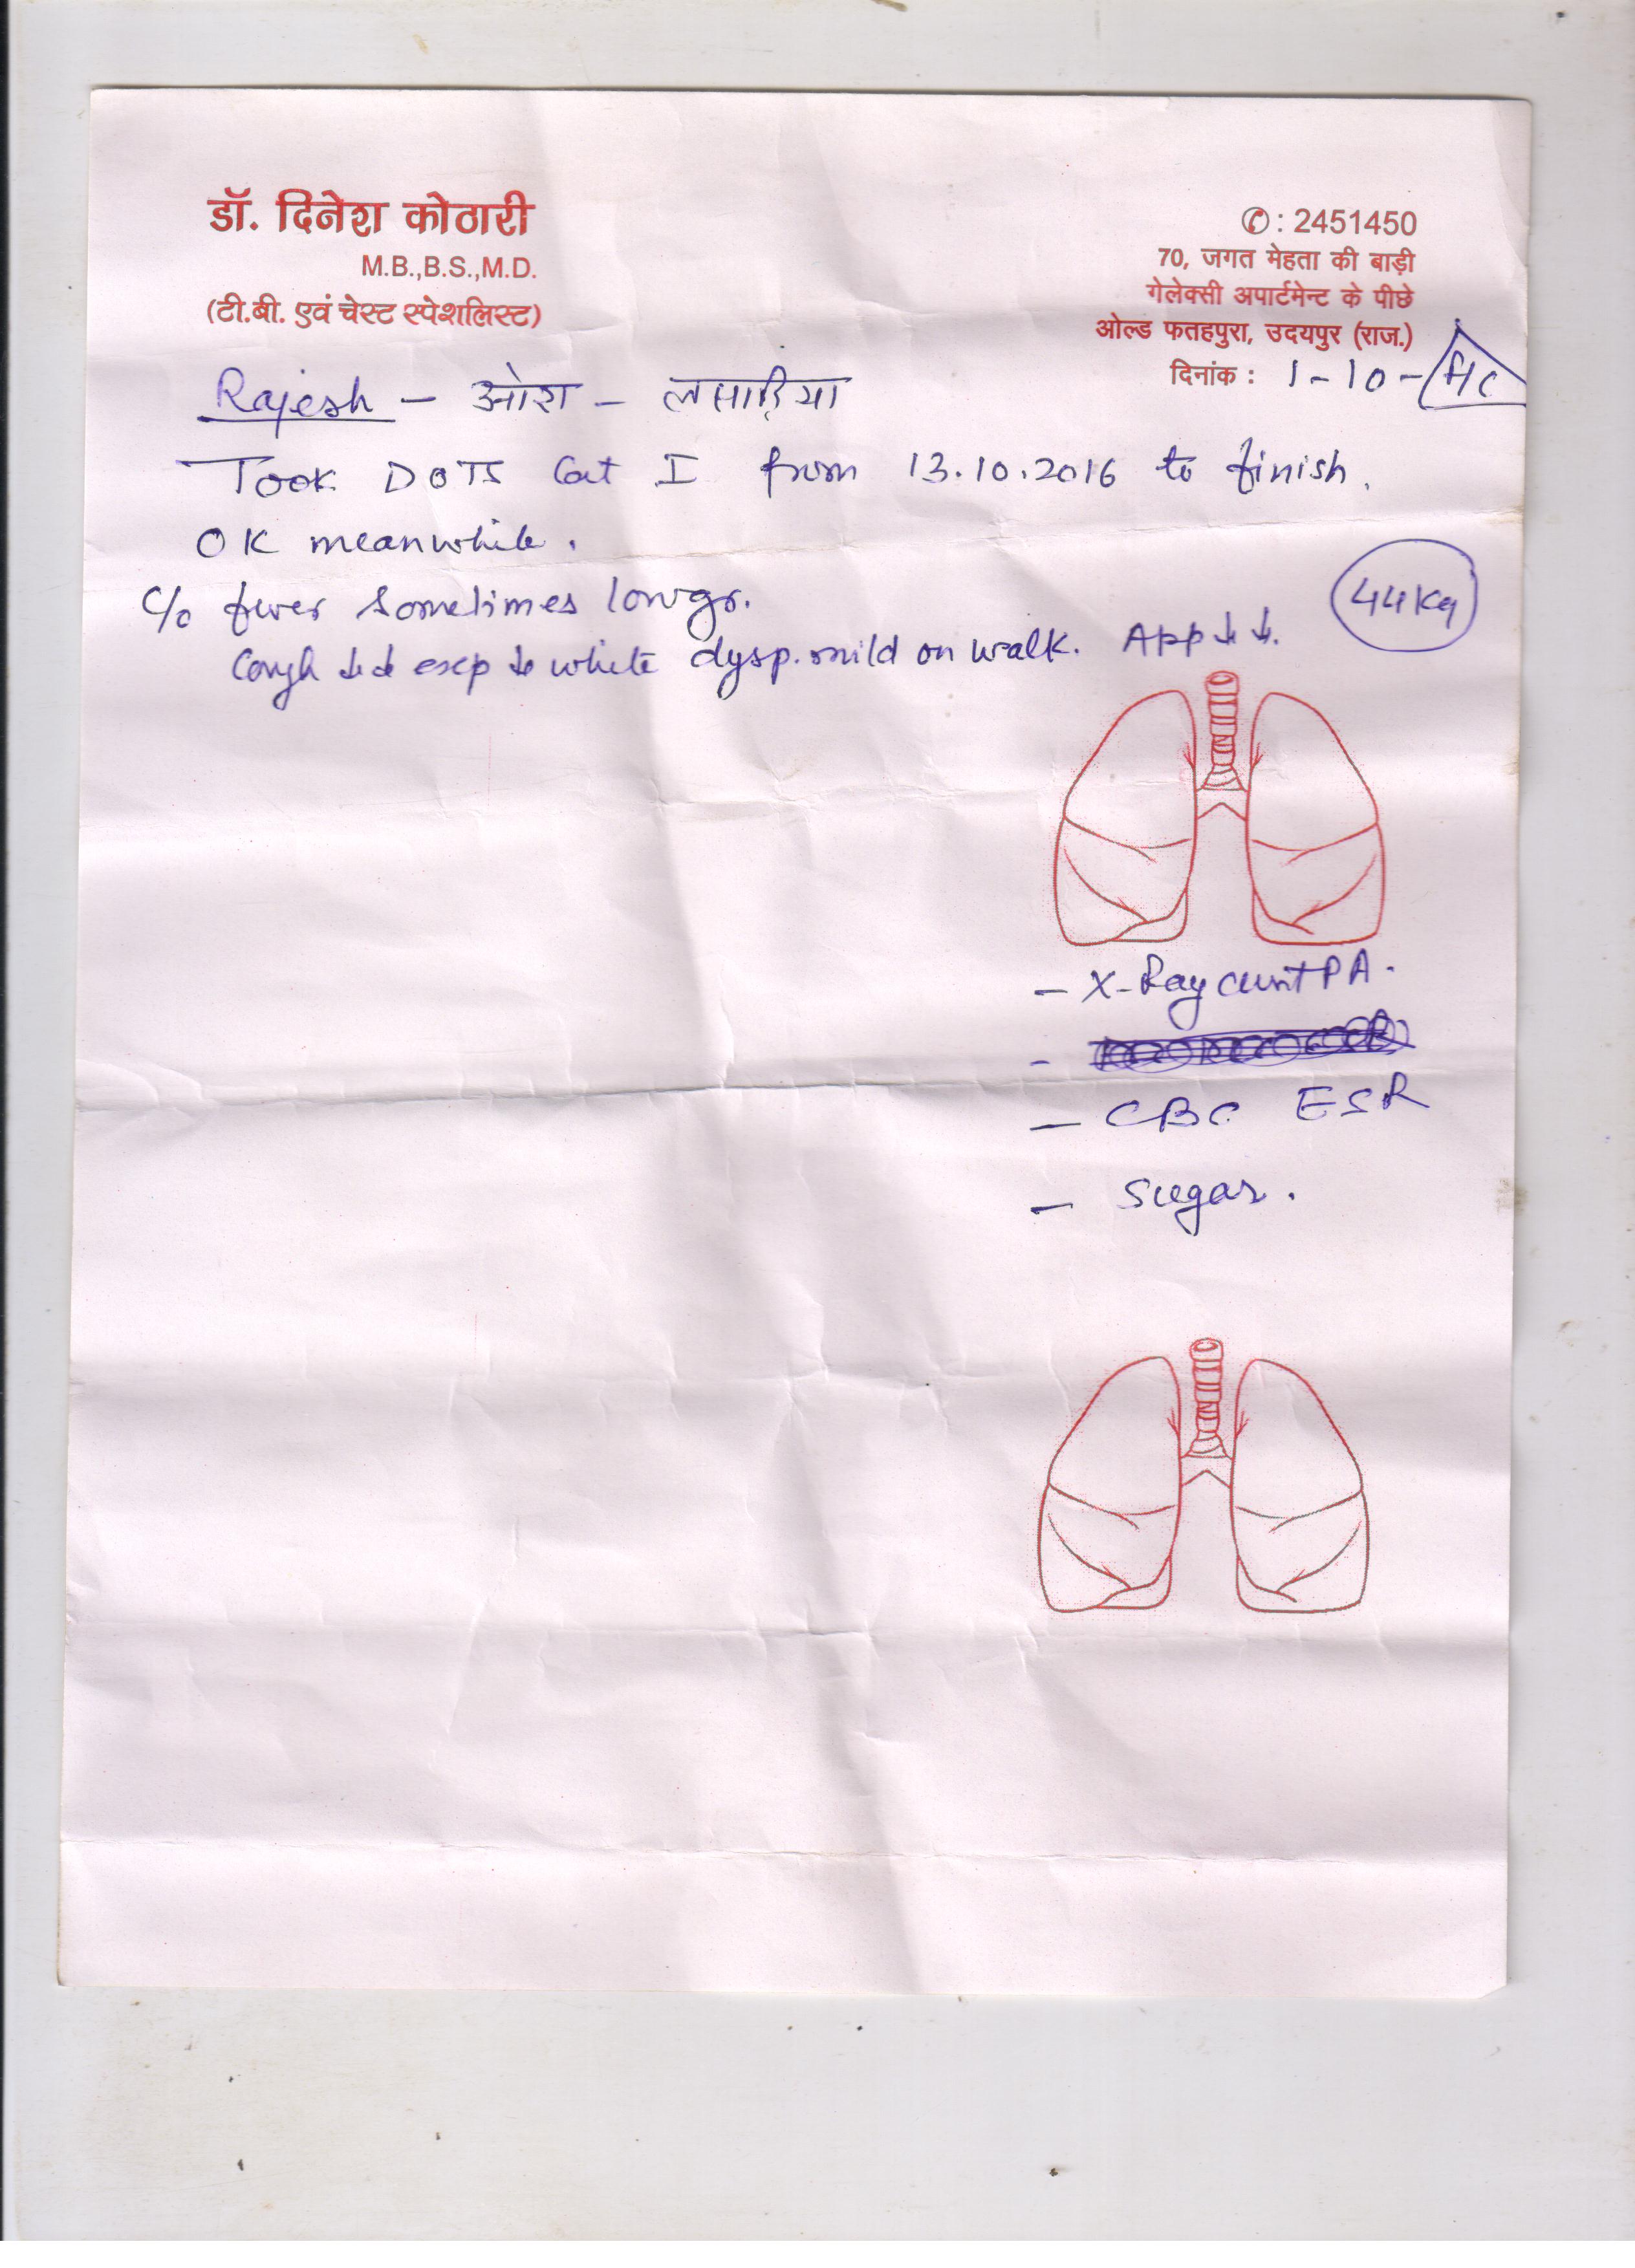 डॉ. दिनेश कोठारी
M.B.,B.S.,M.D.
(टी.बी. एवं चेस्ट स्पेशलिस्ट)
✆: 2451450
70, जगत मेहता की बाड़ी
गेलेक्सी अपार्टमेन्ट के पीछे
ओल्ड फतहपुरा, उदयपुर (राज.)
दिनांक : 1-10-
Rajesh - ओरा - लसाड़िया
Took DOTS Cat I from 13.10.2016 to finish.
OK meanwhile.
C/o fever sometimes lowgr.
44Kg
Cough ↓↓ exp ↓ white dysp. mild on walk. App ↓↓.
- X-Ray chest PA.
- CBC ESR
- Sugar.